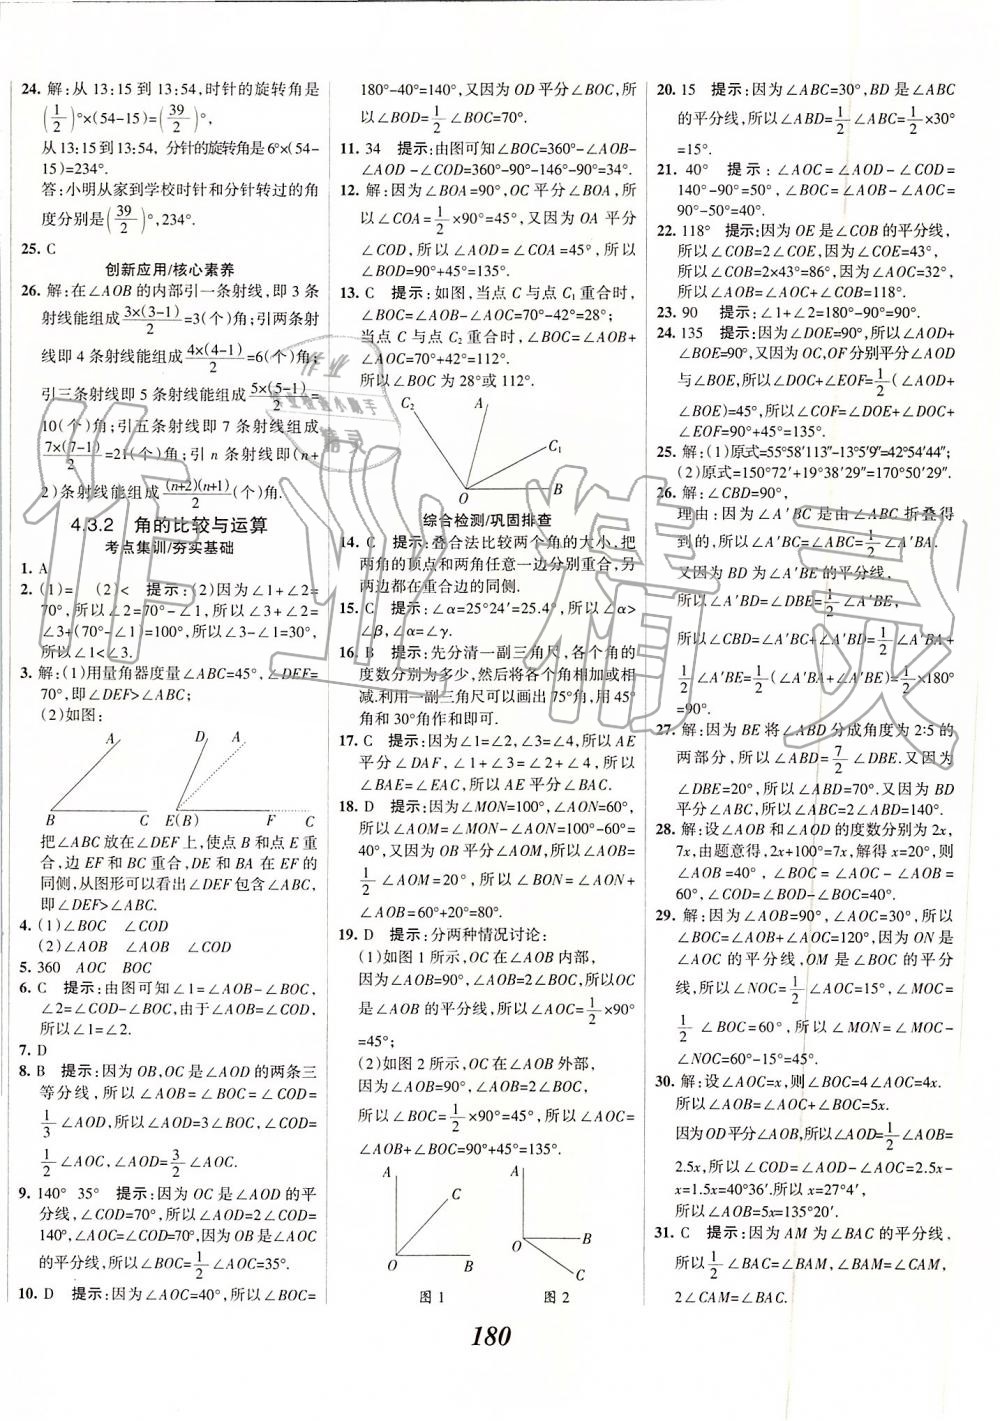 24. 解:从 13:15 到 13:54,时针的旋转角是
(1/2)°×(54-15)=(39/2)°,
从 13:15 到 13:54, 分针的旋转角是 6°×(54-
15)=234°.
答:小明从家到学校时针和分针转过的角
度分别是(39/2)°,234°.
25. C
创新应用/核心素养
26. 解:在∠AOB 的内部引一条射线,即 3 条
射线能组成3×(3-1)/2=3(个)角;引两条射
线即 4 条射线能组成4×(4-1)/2=6(个)角;
引三条射线即 5 条射线能组成5×(5-1)/2=
10(个)角;引五条射线即 7 条射线能组成
7×(7-1)/2=21(个)角;引 n 条射线即(n+
2)条射线能组成(n+2)(n+1)/2(个)角.
4.3.2 角的比较与运算
考点集训/夯实基础
1. A
2. (1)= (2)< 提示:(2)因为∠1+∠2=
70°,所以∠2=70°-∠1,所以∠3+∠2=
∠3+(70°-∠1)=100°,所以∠3-∠1=30°,
所以∠1<∠3.
3. 解:(1)用量角器度量∠ABC=45°,∠DEF=
70°,即∠DEF>∠ABC;
(2)如图:
A D A
B C E(B) F C
把∠ABC 放在∠DEF 上,使点 B 和点 E 重
合,边 EF 和 BC 重合,DE 和 BA 在 EF 的
同侧,从图形可以看出∠DEF 包含∠ABC,
即∠DEF>∠ABC.
4. (1)∠BOC ∠COD
(2)∠AOB ∠AOB ∠COD
5. 360 AOC BOC
6. C 提示:由图可知∠1=∠AOB-∠BOC,
∠2=∠COD-∠BOC,由于∠AOB=∠COD,
所以∠1=∠2.
7. D
8. B 提示:因为 OB,OC 是∠AOD 的两条三
等分线,所以∠AOB=∠BOC=∠COD=
1/3∠AOD,所以∠AOD=3∠BOC,∠BOC=
1/2∠AOC,∠AOD=3/2∠AOC.
9. 140° 35° 提示:因为 OC 是∠AOD 的平
分线,∠COD=70°,所以∠AOD=2∠COD=
140°,∠AOC=∠COD=70°,因为 OB 是∠AOC
的平分线,所以∠BOC=1/2∠AOC=35°.
10. D 提示:因为∠AOC=40°,所以∠BOC=
180°-40°=140°,又因为 OD 平分∠BOC,所
以∠BOD=1/2∠BOC=70°.
11. 34 提示:由图可知∠BOC=360°-∠AOB-
∠AOD-∠COD=360°-90°-146°-90°=34°.
12. 解:因为∠BOA=90°,OC 平分∠BOA,所
以∠COA=1/2×90°=45°,又因为 OA 平分
∠COD,所以∠AOD=∠COA=45°,所以
∠BOD=90°+45°=135°.
13. C 提示:如图,当点 C 与点 C₁ 重合时,
∠BOC=∠AOB-∠AOC=70°-42°=28°;
当点 C 与点 C₂ 重合时,∠BOC=∠AOB+
∠AOC=70°+42°=112°.
所以∠BOC 为 28°或 112°.
C₂ A
C₁
O B
综合检测/巩固排查
14. C 提示:叠合法比较两个角的大小,把
两角的顶点和两角任意一边分别重合,另
两边都在重合边的同侧.
15. C 提示:∠α=25°24′=25.4°,所以∠α>
∠β,∠α=∠γ.
16. B 提示:先分清一副三角尺,各个角的
度数分别为多少,然后将各个角相加或相
减.利用一副三角尺可以画出 75°角,用 45°
角和 30°角作和即可.
17. C 提示:因为∠1=∠2,∠3=∠4,所以 AE
平分∠DAF,∠1+∠3=∠2+∠4,所以
∠BAE=∠EAC,所以 AE 平分∠BAC.
18. D 提示:因为∠MON=100°,∠AON=60°,
所以∠AOM=∠MON-∠AON=100°-60°=
40°,又因为 OB 平分∠AOM,所以∠AOB=
1/2∠AOM=20°,所以∠BON=∠AON+
∠AOB=60°+20°=80°.
19. D 提示:分两种情况讨论:
(1)如图 1 所示,OC 在∠AOB 内部,
因为∠AOB=90°,∠AOB=2∠BOC,所以OC
是∠AOB 的平分线,所以∠AOC=1/2×90°
=45°;
(2)如图 2 所示,OC 在∠AOB 外部,
因为∠AOB=90°,∠AOB=2∠BOC,
所以∠BOC=1/2×90°=45°,所以∠AOC=
∠AOB+∠BOC=90°+45°=135°.
A C A
O B O B
C
图 1 图 2
20. 15 提示:因为∠ABC=30°,BD 是∠ABC
的平分线,所以∠ABD=1/2∠ABC=1/2×30°
=15°.
21. 40° 提示:∠AOC=∠AOD-∠COD=
140°-90°=50°,∠BOC=∠AOB-∠AOC=
90°-50°=40°.
22. 118° 提示:因为 OE 是∠COB 的平分线,
所以∠COB=2∠COE,因为∠COE=43°,
所以∠COB=2×43°=86°,因为∠AOC=32°,
所以∠AOB=∠AOC+∠COB=118°.
23. 90 提示:∠1+∠2=180°-90°=90°.
24. 135 提示:因为∠DOE=90°,所以∠AOD+
∠BOE=90°,又因为 OC,OF 分别平分∠AOD
与∠BOE,所以∠DOC+∠EOF=1/2(∠AOD+
∠BOE)=45°,所以∠COF=∠DOE+∠DOC+
∠EOF=90°+45°=135°.
25. 解:(1)原式=55°58′113″-13°5′9″=42°54′44″;
(2)原式=150°72′+19°38′29″=170°50′29″.
26. 解:∠CBD=90°,
理由:因为∠A′BC 是由∠ABC 折叠得
到的,所以∠A′BC=∠ABC=1/2∠A′BA.
又因为 BD 为∠A′BE 的平分线,
所以∠A′BD=∠DBE=1/2∠A′BE,
所以∠CBD=∠A′BC+∠A′BD=1/2∠A′BA+
1/2∠A′BE=1/2(∠A′BA+∠A′BE)=1/2×180°
=90°.
27. 解:因为 BE 将∠ABD 分成角度为 2:5 的
两部分,所以∠ABD=7/2∠DBE.又因为
∠DBE=20°,所以∠ABD=70°.又因为 BD
平分∠ABC,所以∠ABC=2∠ABD=140°.
28. 解:设∠AOB 和∠AOD 的度数分别为 2x,
7x,由题意得,2x+100°=7x,解得 x=20°,则
∠AOB=40°,∠BOC=∠AOC-∠AOB=
60°,∠COD=∠BOD-∠BOC=40°.
29. 解:因为∠AOB=90°,∠AOC=30°,所以
∠BOC=∠AOB+∠AOC=120°,因为 ON 是
∠AOC 的平分线,OM 是∠BOC 的平分
线,所以∠NOC=1/2∠AOC=15°,∠MOC=
1/2∠BOC=60°,所以∠MON=∠MOC-
∠NOC=60°-15°=45°.
30. 解:设∠AOC=x,则∠BOC=4∠AOC=4x.
所以∠AOB=∠AOC+∠BOC=5x.
因为OD平分∠AOB,所以∠AOD=1/2∠AOB=
2.5x,所以∠COD=∠AOD-∠AOC=2.5x-
x=1.5x=40°36′.所以 x=27°4′,
所以∠AOB=5x=135°20′.
31. C 提示:因为 AM 为∠BAC 的平分线,
所以1/2∠BAC=∠BAM,∠BAM=∠CAM,
2∠CAM=∠BAC.
180
作业精灵
作业
作业检查小助手
精灵